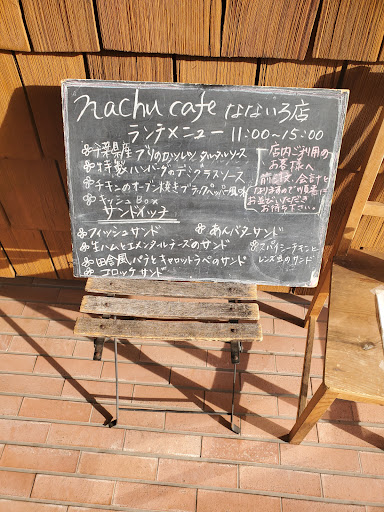 nachu cafe なないろ店
ランチメニュー 11:00〜15:00
千葉県産 ブリのカツレツ タルタルソース
特製ハンバーグのデミグラスソース
チキンのオーブン焼き ブラックペッパー風味
キッシュBox
店内ご利用の
お客様へ
前払い会計と
なりますので順番に
お並びいただき
お待ち下さい。
サンドイッチ
フィッシュサンド
生ハムとエメンタルチーズのサンド
田舎風パテとキャロットラペのサンド
コロッケサンド
あんバターサンド
スパイシーチキンと
レンズ豆のサンド